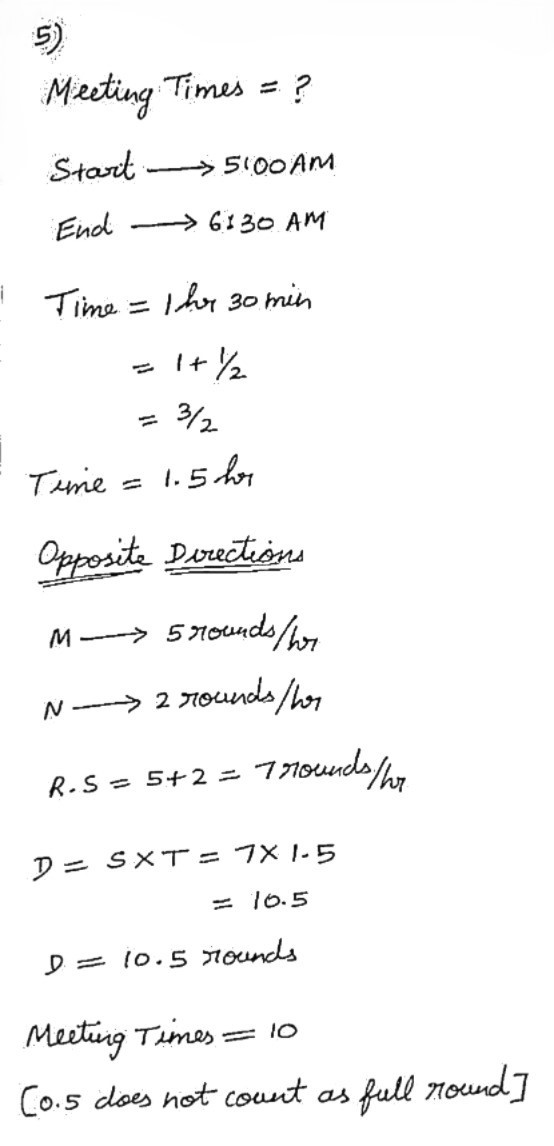 5)
Meeting Times = ?
Start ⟶ 5:00 AM
End ⟶ 6:30 AM
Time = 1 hr 30 min
= 1 + 1/2
= 3/2
Time = 1.5 hr
Opposite Directions
M ⟶ 5 rounds/hr
N ⟶ 2 rounds/hr
R.S = 5+2 = 7 rounds/hr
D = S×T = 7× 1.5
= 10.5
D = 10.5 rounds
Meeting Times = 10
[0.5 does not count as full round]